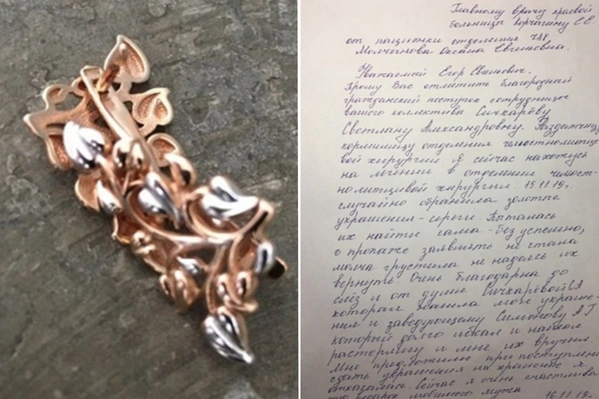 Главному врачу краевой
больницы Корчагину Е Е
от пациентки отделения ЧЛХ
Молчановой Оксана Евгеньевна.
Уважаемый Егор Евгеньевич.
Прошу Вас отметить благородный
гражданский поступок сотрудницы
вашего коллектива Сичкарёву
Светлану Александровну. Раздатчицу
кормилицу отделения челюстнолице-
вой хирургии. Я сейчас нахожусь
на лечении в отделении челюст-
нолицевой хирургии. 15.11.19г.
случайно обронила золотое
украшения - серьги. Пыталась
их найти сама - безуспешно,
о пропаже заявлять не стала
молча грустила не надеясь их
вернуть. Очень благодарна до
слёз и от души Сичкаревой С.А
которая нашла мои украше-
ния и заведующему Симонову А.Г
который долго искал и нашел
растеряшу и мне их вручил
Мне предложили при поступлении
сдать украшения на хранение я
отказалась. Сейчас я очень счастлива
это подарок любимого мужа
16.11.19г.